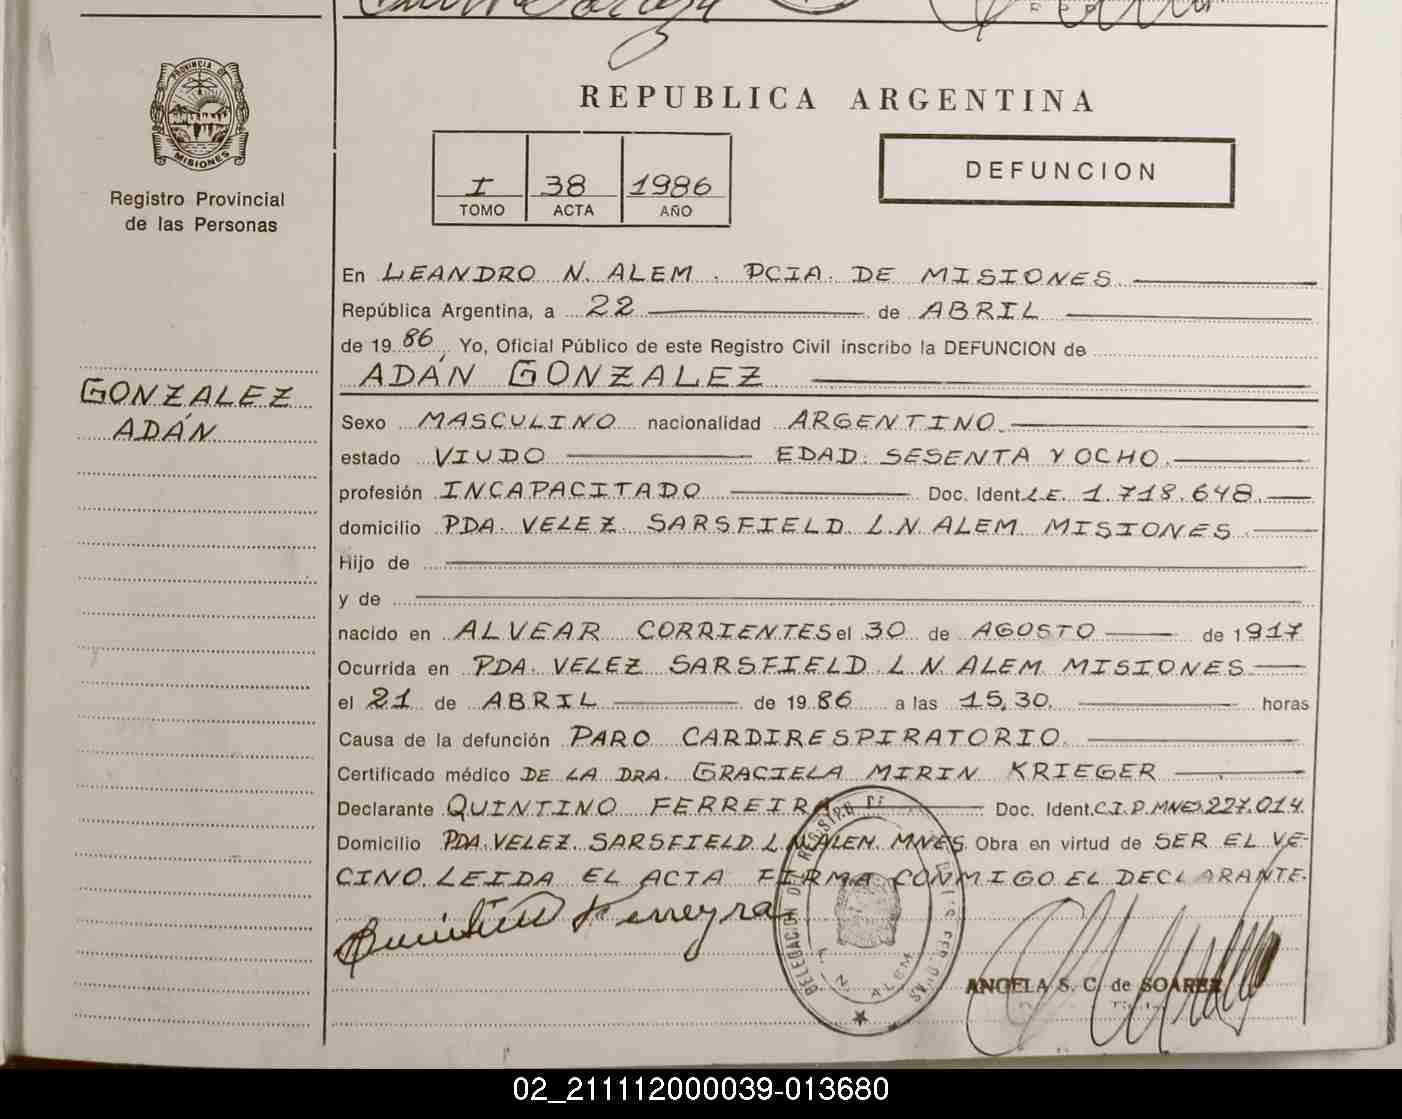 PROVINCIA DE
MISIONES
Registro Provincial
de las Personas
GONZALEZ
ADÁN
REPUBLICA ARGENTINA
I 38 1986
TOMO ACTA AÑO
DEFUNCION
En LEANDRO N. ALEM. PCIA. DE MISIONES
República Argentina, a 22 de ABRIL
de 1986, Yo, Oficial Público de este Registro Civil inscribo la DEFUNCION de
ADÁN GONZALEZ
Sexo MASCULINO nacionalidad ARGENTINO.
estado VIUDO EDAD. SESENTA Y OCHO.
profesión INCAPACITADO Doc. Ident. L.E. 1.718.648.
domicilio PDA. VELEZ SARSFIELD L.N. ALEM MISIONES.
Hijo de
y de
nacido en ALVEAR CORRIENTES el 30 de AGOSTO de 1917
Ocurrida en PDA. VELEZ SARSFIELD L.N. ALEM MISIONES
el 21 de ABRIL de 1986 a las 15,30. horas
Causa de la defunción PARO CARDIRESPIRATORIO.
Certificado médico DE LA DRA. GRACIELA MIRIN KRIEGER
Declarante QUINTINO FERREIRA Doc. Ident. C.I.P. MNES. 227.014.
Domicilio PDA. VELEZ SARSFIELD L.N. ALEM. MNES. Obra en virtud de SER EL VE-
CINO. LEIDA EL ACTA FIRMA CONMIGO EL DECLARANTE.
Quintino Ferreyra
DELEGACION DEL REGISTRO
L. N. ALEM
ANGELA S. C. de SOAREZ
02_211112000039-013680